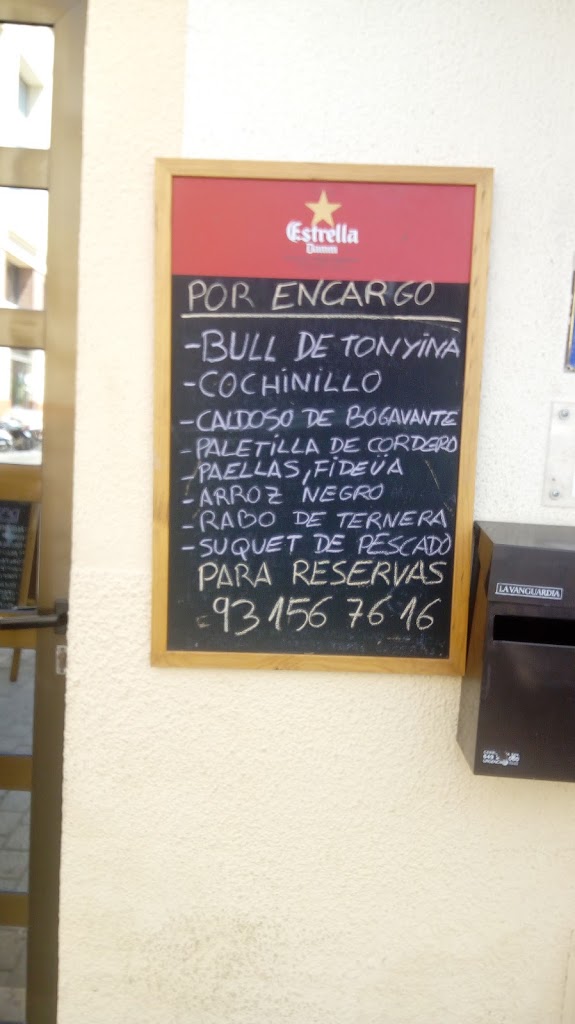 Estrella
Damm
POR ENCARGO
-BULL DE TONYINA
-COCHINILLO
-CALDOSO DE BOGAVANTE
-PALETILLA DE CORDERO
-PAELLAS, FIDEÜA
-ARROZ NEGRO
-RABO DE TERNERA
-SUQUET DE PESCADO
PARA RESERVAS
-93 156 76 16
LA VANGUARDIA